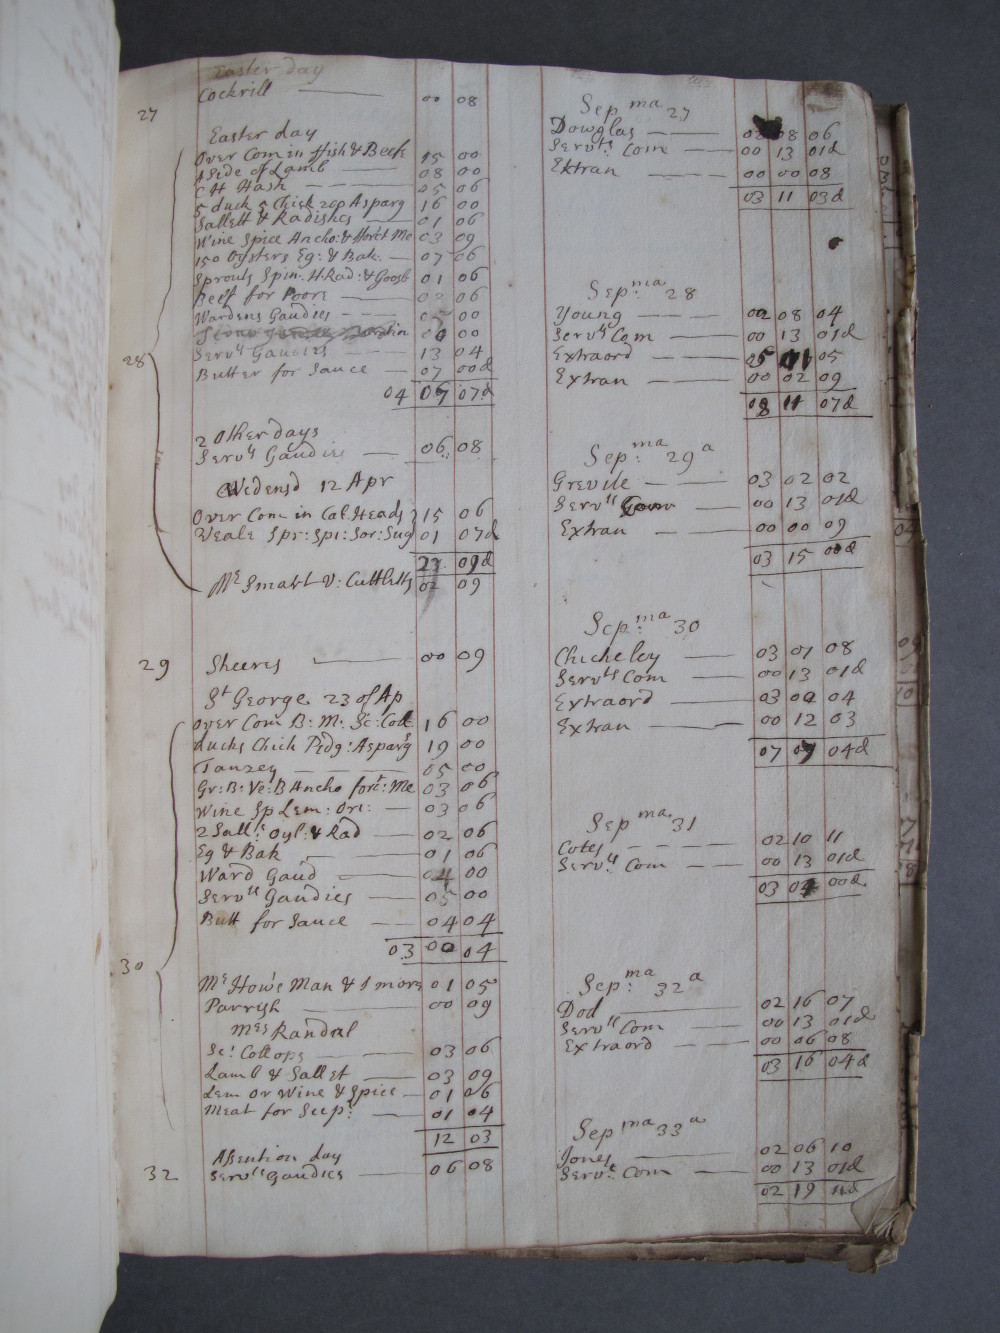 Easter day
27 Cockrill 00 08
Easter day
Over Com in ffish & Beefe 15 00
A Side of Lamb 08 00
C H Hash 05 06
5 duck 5 Chick 200 Asparg 16 00
Sallett & Radishes 01 06
Wine Spice Ancho: & fforct Me 03 09
150 Oysters Eg: & Bak. 07 06
Sprouts Spin: H.Rad: & Goosb 01 06
Beeff for Poore 02 06
Wardens Gaudies 00
00
28 Servts Gaudies 13 04
Butter for Sauce 07 00d
04 07 07d
2 Other days
Servts Gaudies 06 08
Wedensd 12 Apr
Over Com in Cal. Heads 15 06
Veale Spr: Spi: Sor: Sug 01 07d
09d
Mr Smart V: Cuttletts 02 09
29 Sheeres 00 09
St George 23 of Ap
Over Com B: M: Sc: Coll 16 00
ducks Chick Pidg: Asparg 19 00
Tanzey 05 00
Gr: B: Ve: B Ancho forct: Me 03 06
Wine Sp Lem: Ori: 03 06
2 Salls Oyl: & Rad 02 06
Eg & Bak 01 06
Ward Gaud 04 00
Servts Gaudies 05 00
Butt for Sauce 04 04
03 00 04
30
Mr How's Man & 1 more 01 05
Parrish 00 09
Mrs Randal
Sc: Collops 03 06
Lamb & Sallet 03 09
Lem or Wine & Spice 01 06
Meat for Supr 01 04
12 03
Asention day
32 Servts Gaudies 06 08
Sepma 27
Dowglas 08 06
Servts Com 00 13 01d
Extran 00 00 08
03 11 03d
Sep:ma 28
Young 02 08 04
Servts Com 00 13 01d
Extraord 05 05
Extran 00 02 09
08 11 07d
Sep:ma 29a
Grevile 03 02 02
Servts Com 00 13 01d
Extran 00 00 09
03 15 00d
Sep:ma 30
Chicheley 03 01 08
Servts Com 00 13 01d
Extraord 03 00 04
Extran 00 12 03
07 07 04d
Sepma 31
Cotes 02 10 11
Servts Com 00 13 01d
03 04 00d
Sep:ma 32a
Dod 02 16 07
Servts Com 00 13 01d
Extraord 00 06 08
03 16 04d
Sepma 33a
Jones 02 06 10
Servts Com 00 13 01d
02 19 11d